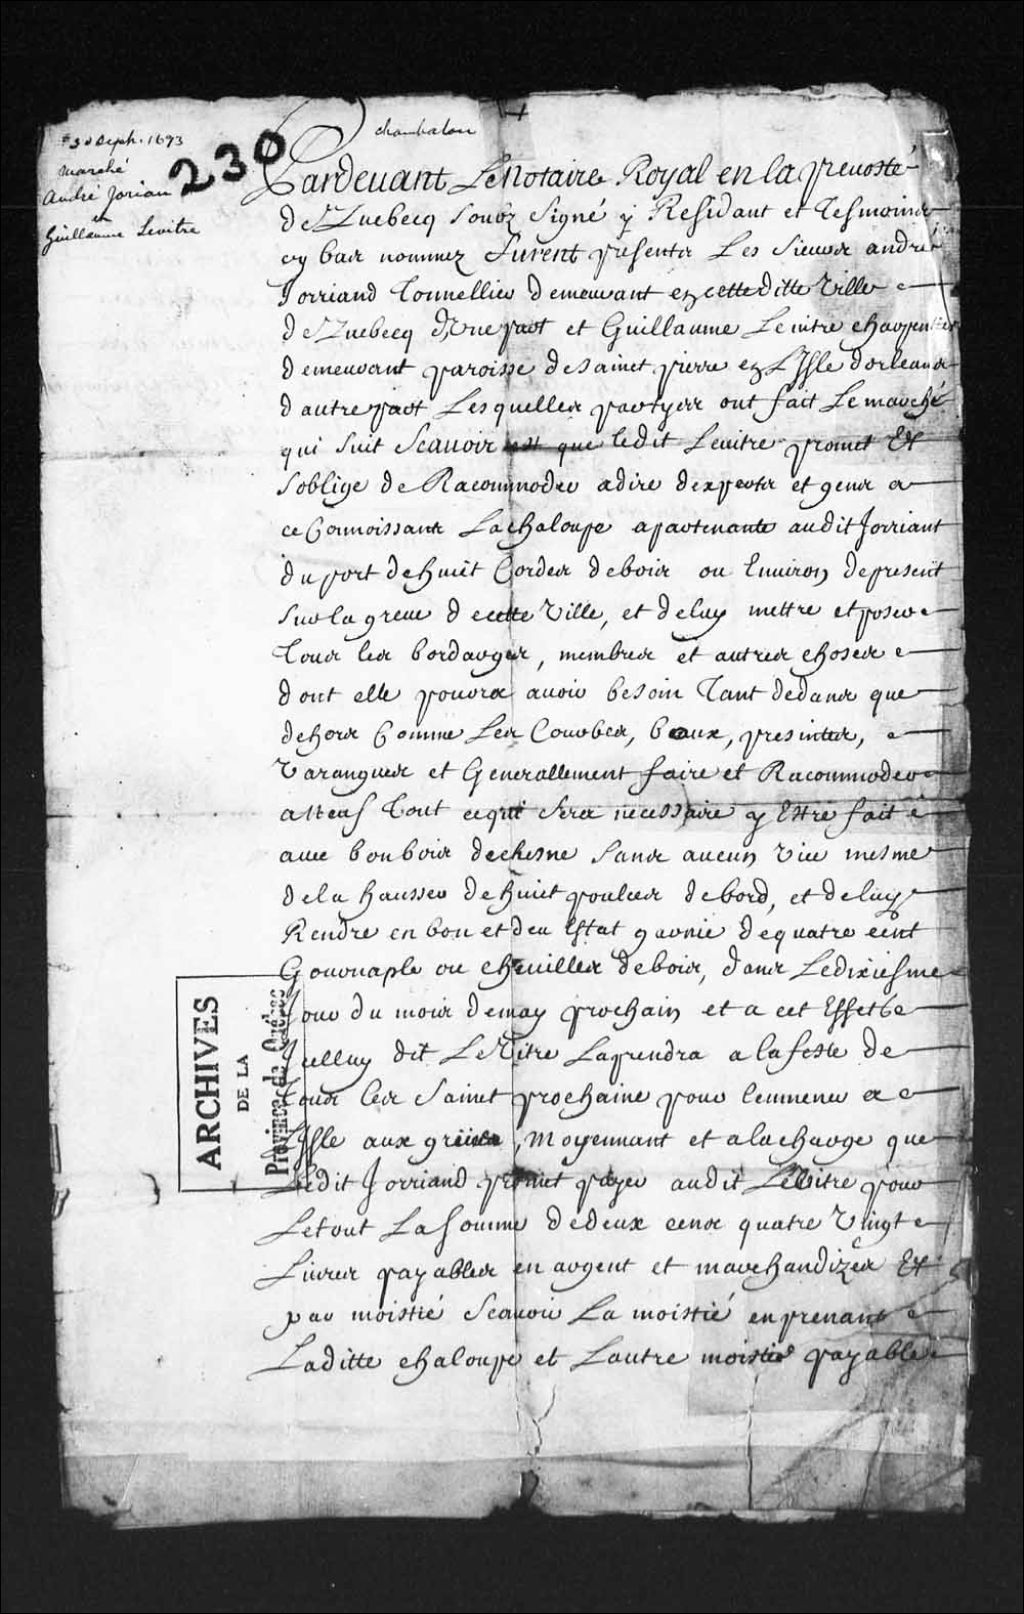 30 Sept. 1693
Marché
André Jorian
&
Guillaume Levitre
230
chambalon
Pardevant Le Notaire Royal en la prevosté
de Quebecq soubz signé y Residant et tesmoins
cy bas nommez furent presents Les sieurs andré
Jorriand Tonnellier demeurant en cette ditte Ville
de Quebecq d'Une part et Guillaume Levitre charpentier
demeurant paroisse de Sainct pierre en L'Isle d'orleans
d'autre part Lesquelles partyes ont fait Le marché
qui suit Scauoir est que ledit Leuitre promet Et
s'oblige de Racommoder a dire dexperts et gens a
ce Connoissans La chaloupe apartenante audit Jorriant
du port de huict Cordes de bois ou Enuiron de present
sur la greue de cette Ville, et de luy mettre et poser
Tous les bordages, membres et autres choses
dont elle pourra auoir besoin Tant dedans que
dehors Comme Les Courbes, baux, presintes,
Varangues et Generallement faire et Racommoder
Tout ce qui sera necessaire y Estre fait
auec bon bois de chesne sans aucun Vice mesme
de la hausser de huict poulces de bord, et de luy
Rendre en bon et deu Estat garnie de quatre cent
Gournaple ou cheuilles de bois, dans Le dixiesme
Jour du mois de may prochain et a cet Effet
Icelluy dit Le Vitre La prendra a la feste de
Tous les Sainct prochaine pour lemmener a
L'Isle aux , Moyennant et a la charge que
Ledit Jorriand promet payer audit Le Vitre pour
Le tout La somme de deux cens quatre Vingt
Liures payables en argent et marchandizes Et
par moistié Scauoir La moistié en prenant
Laditte chaloupe et Lautre moistié payable
ARCHIVES
DE LA
Province de Québec